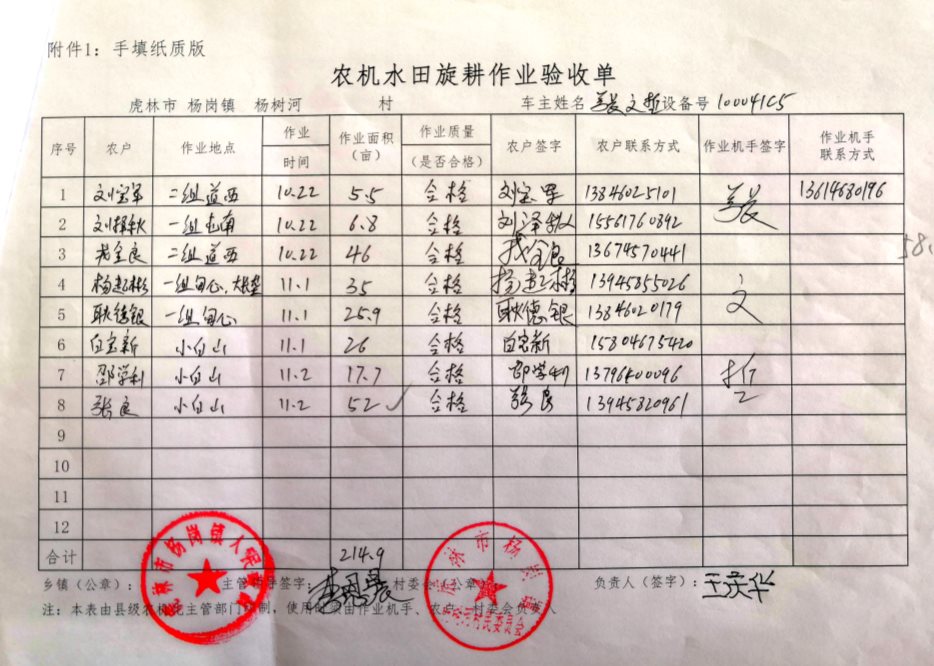 附件1: 手填纸质版
农机水田旋耕作业验收单
虎林市 杨岗镇 杨树河 村 车主姓名 张文哲 设备号 100041C5
序号 农户 作业地点 作业时间 作业面积（亩） 作业质量（是否合格） 农户签字 农户联系方式 作业机手签字 作业机手联系方式
1 刘宝军 二组道西 10.22 5.5 合格 刘宝军 13846025101 张 13614680196
2 刘泽秋 一组屯南 10.22 6.8 合格 刘泽秋 15561760892
3 全良 二组道西 10.22 46 合格 全良 13674570441 58
4 杨超彬 一组 11.1 35 合格 杨超彬 13945855026 文
5 耿德银 一组 11.1 25.9 合格 耿德银 13846020179
6 白宝新 小白山 11.1 26 合格 白宝新 15804675420
7 邵学利 小白山 11.2 17.7 合格 邵学利 13796400096 哲
8 张良 小白山 11.2 52 ✓ 合格 张良 13945820961
9
10
11
12
合计 214.9
乡镇（公章）: 主管 签字: 村委会（公章 负责人（签字）: 王庆华
注: 本表由县级农机化主管部门 制, 使用 须由作业机手、农户、村委会负责人
虎林市杨岗镇人民
虎林市杨岗镇 村民委员会